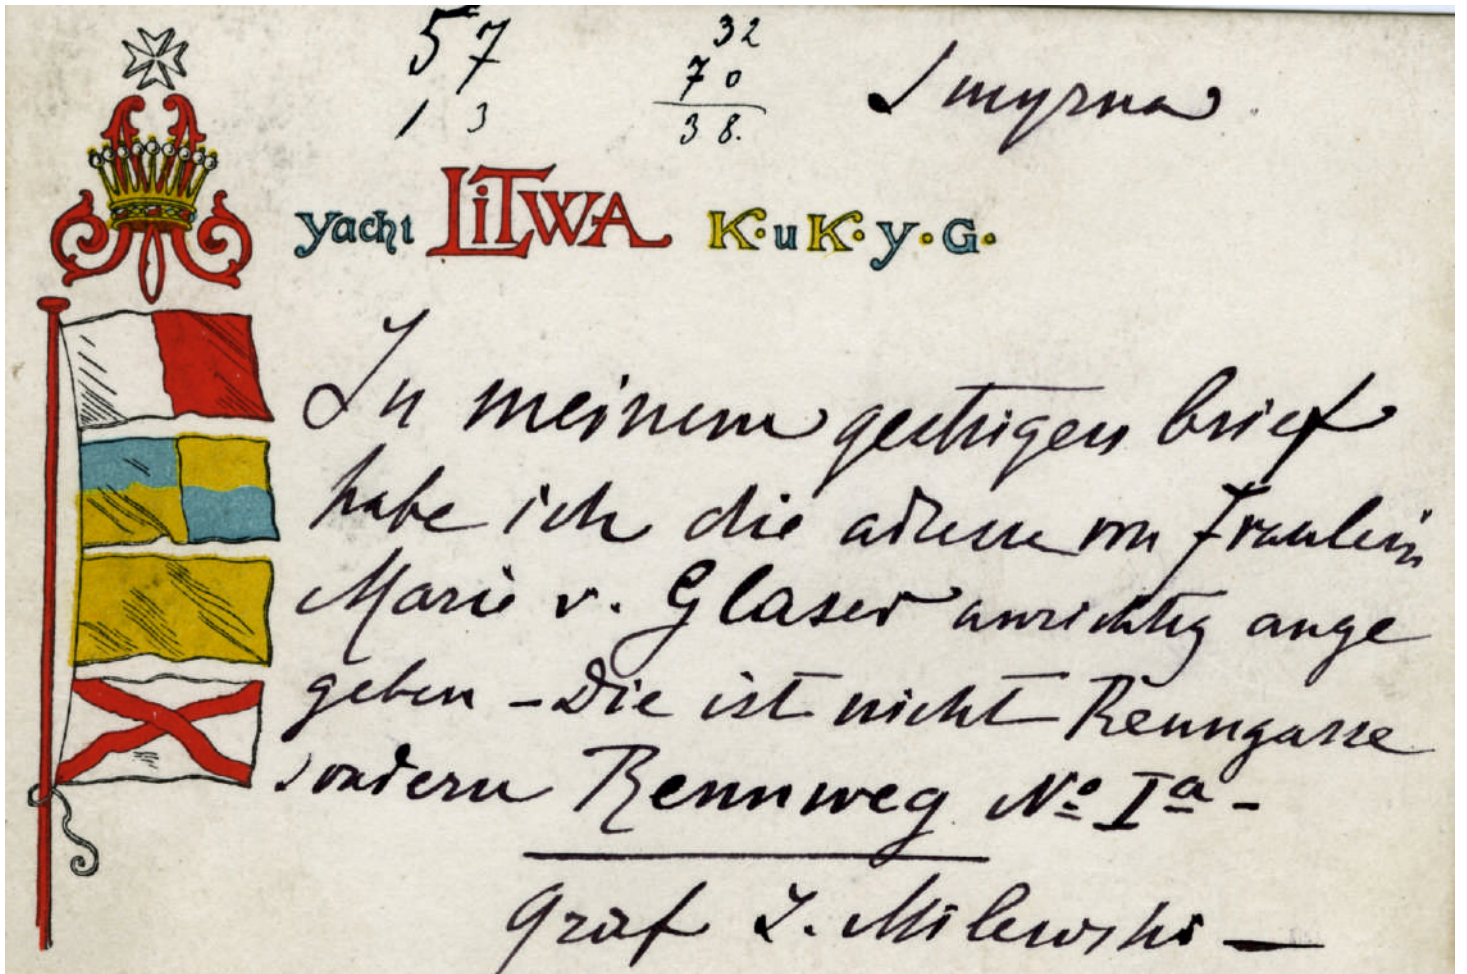 57
13
32
70
38.
Smyrna
Yacht LiTWA K.u K. Y. G.
In meinem gestrigen brief
habe ich die adresse von Fraulein
Marie v. Glaser unrichtig ange
geben – Die ist nicht Renngasse
sondern Rennweg No Ia –
Graf I. Milewski —